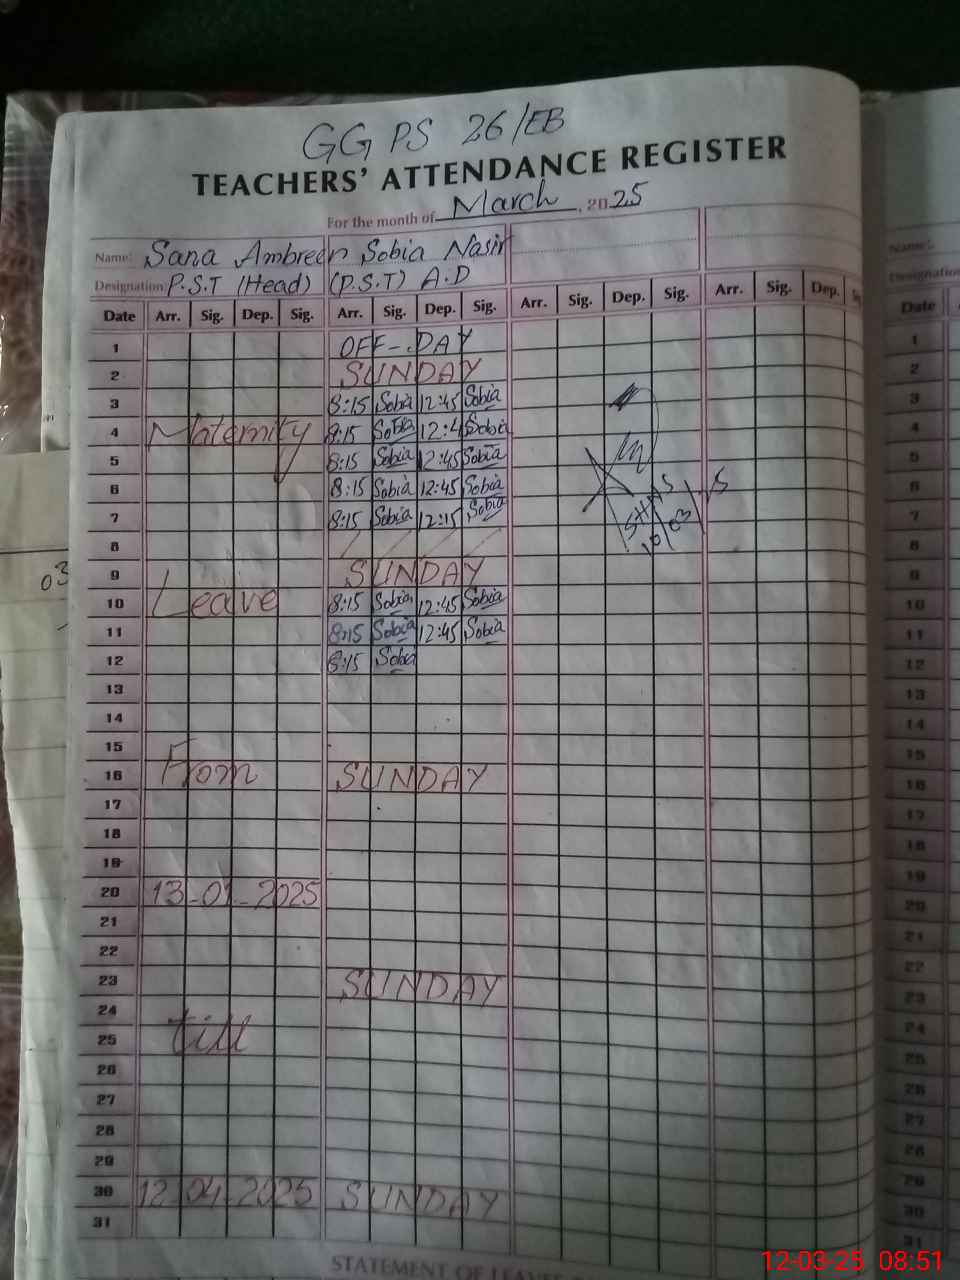 GG PS 26/EB
TEACHERS' ATTENDANCE REGISTER
For the month of March, 2025
Name: Sana Ambreen Sobia Nasir
Designation: P.S.T (Head) (P.S.T) A.D
Date Arr. Sig. Dep. Sig. Arr. Sig. Dep. Sig. Arr. Sig. Dep. Sig. Arr. Sig. Dep.
1 OFF-DAY
2 SUNDAY
3 8:15 Sobia 12:45 Sobia
4 Maternity 8:15 Sobia 12:4 Sobia
5 8:15 Sobia 12:45 Sobia
6 8:15 Sobia 12:45 Sobia
7 8:15 Sobia 12:15 Sobia
8
9 SUNDAY
10 Leave 8:15 Sobia 12:45 Sobia
11 8:15 Sobia 12:45 Sobia
12 8:15 Sobia
13
14
15
16 From SUNDAY
17
18
19
20 13-01-2025
21
22
23 SUNDAY
24
25 till
26
27
28
29
30 12-04-2025 SUNDAY
31
STATEMENT OF LEAVE
Name:
Designation
Date
1
2
3
4
5
6
7
8
9
10
11
12
13
14
15
16
17
18
19
20
21
22
23
24
25
26
27
28
29
30
31
03
12-03-25 08:51